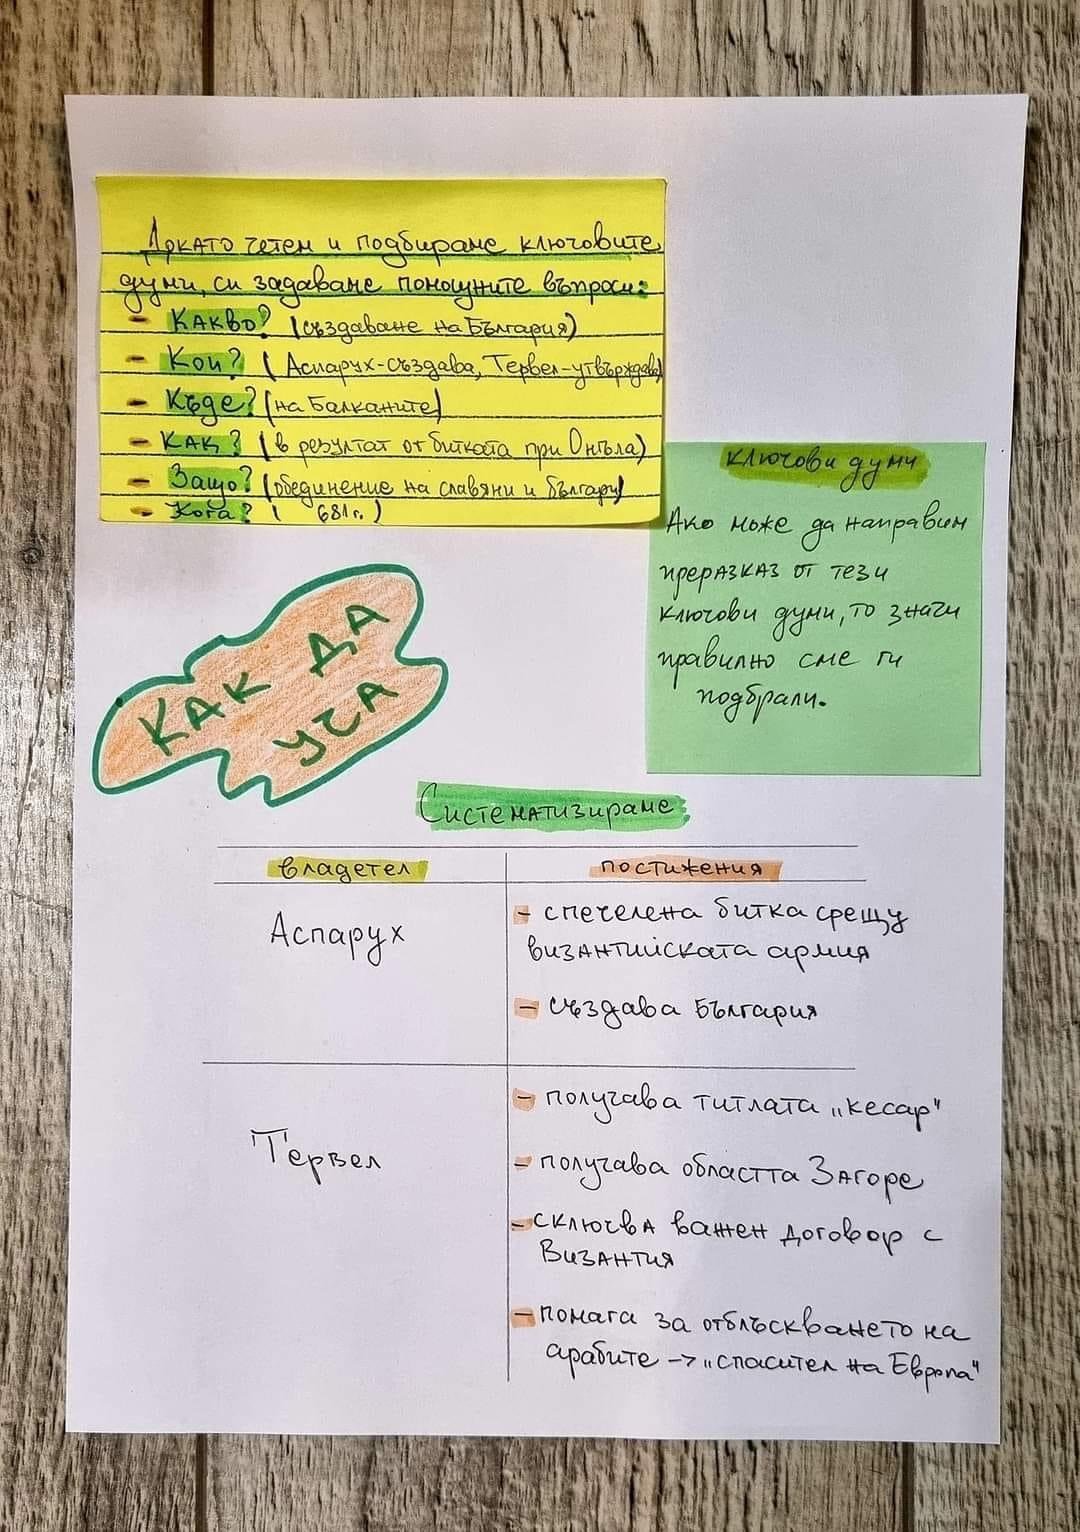 Докато четем и подбираме ключовите
думи, си задаваме помощните въпроси:
- Какво? (създаване на България)
- Кои? (Аспарух-създава, Тервел-утвърждава)
- Къде? (на Балканите)
- Как? (в резултат от битката при Онгъла)
- Защо? (обединение на славяни и българи)
- Кога? (681г.)
ключови думи
Ако може да направим
преразказ от тези
ключови думи, то значи
правилно сме ги
подбрали.
КАК ДА
УЧА
Систематизиране
владетел постижения
Аспарух
- спечелена битка срещу
византийската армия
- създава България
Тервел
- получава титлата „кесар"
- получава областта Загоре
- сключва важен договор с
Византия
- помага за отблъскването на
арабите -> „спасител на Европа"